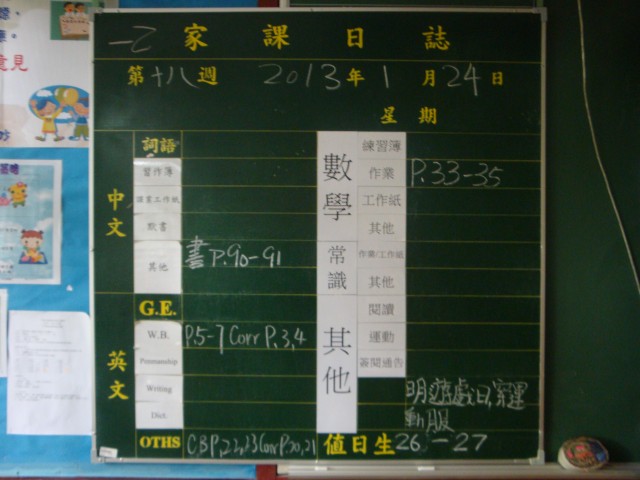 一乙 家課日誌
第十八週 2013年1月24日
星期
中文
詞語
習作簿
默書
其他 書 P.90-91
英文
G.E.
W.B. P.5-7 Corr P.3,4
Penmanship
Writing
Dict.
OTHS CB P.22,23 Corr P.20,21
數學
練習簿
作業 P.33-35
工作紙
其他
常識
作業/工作紙
其他
其他
閱讀
運動
簽閱通告
明遊戲日,穿運
動服
值日生 26-27
意見